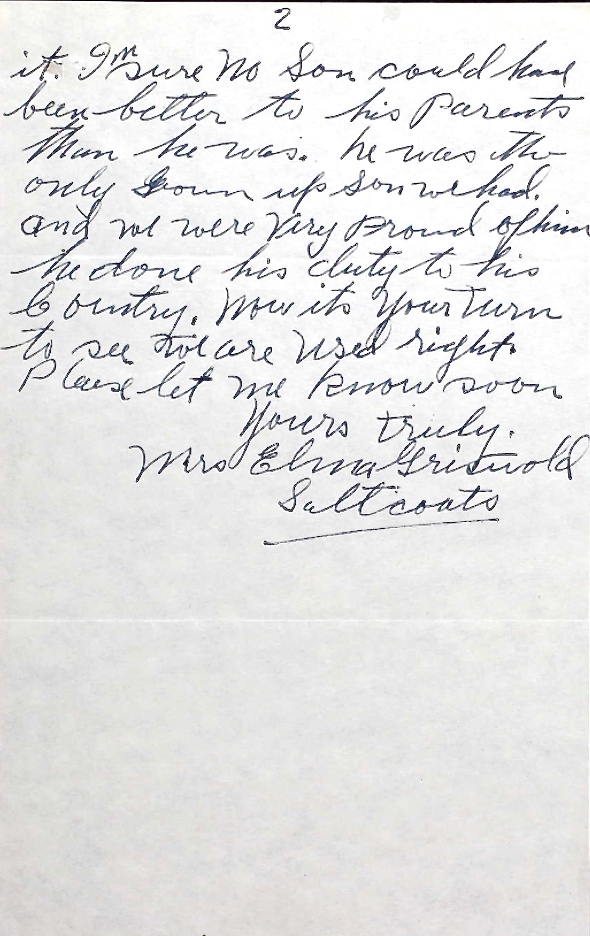 2
it. I'm sure No Son could have
been better to his Parents
than he was. he was the
only Grown up Son we had.
and we were Very Proud of him
he done his duty to his
Country. Now its Your Turn
to see we are Used right.
Please let me know soon
Yours truly.
Mrs Elma Griswold
Saltcoats